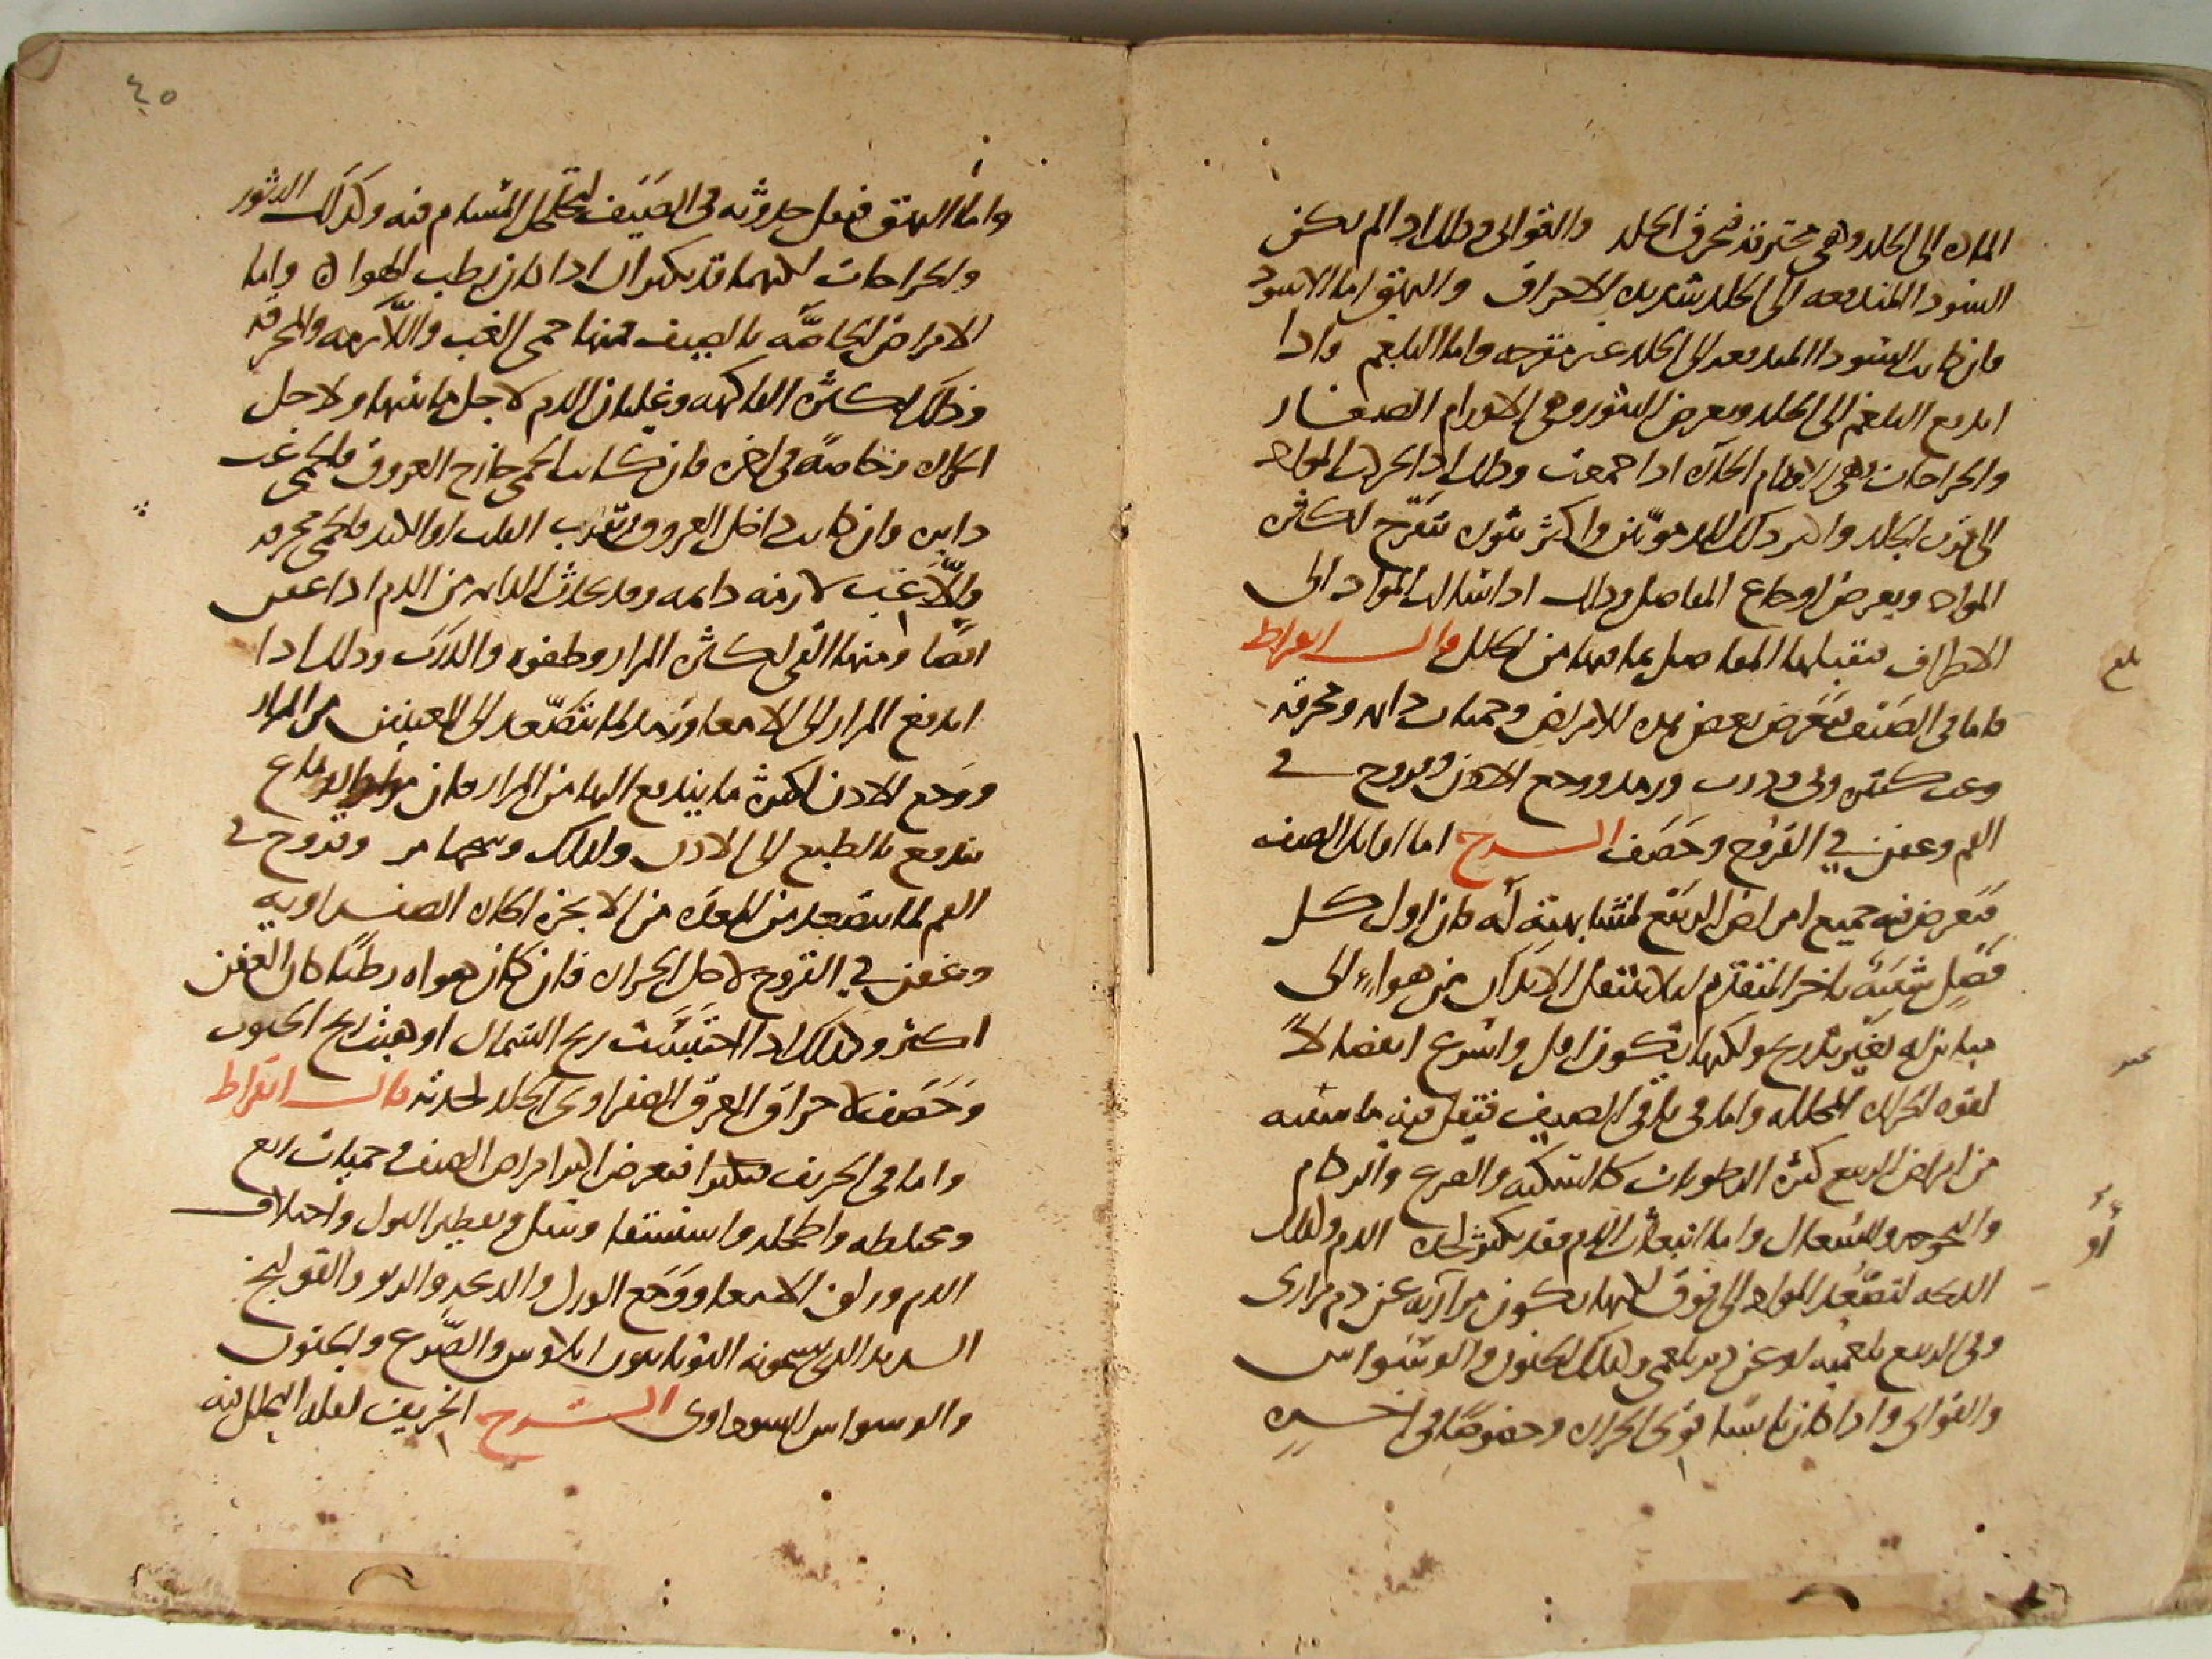 الماده الى الجلد وهي محترقه فتحرق الجلد والقوابي وذلك اذا لم يكن
السودا المندفعه الى الجلد شديده الاحراق والبهق اما الاسود
فان كانت السودا المندفعه الى الجلد غير مقرحه واما البلغم واذا
اندفع البلغم الى الجلد ويعرض البثور وهي الاورام الصغار
والخراجات وهي الاورام الحاره اذا جمعت وذلك اذا تحركت المواد
الى نحو الجلد واكثر ذلك للدمويين واكثر بثوره تتقرح لكثرة
المواد ويعرض اوجاع المفاصل وذلك اذا سالت المواد الى
الاطراف فتقبلها المفاصل بما فيها من الخلل قال ابقراط
فاما في الصيف فيعرض بعض هذه الامراض وحميات دايمه ومحرقه
وغب كثيره وقي وذرب ورمد ووجع الاذن وقروح في
الفم وعفن في القروح وحصف الشرح اما اوايل الصيف
فتعرض فيه جميع امراض الربيع لمشابهته له فان اول كل
فصل شبيه باخر المتقدم ليلا تنتقل الابدان من هواء الى
مباينه له بغير تدريج ولكنها تكون اقل واسرع انفصالا
لقوه الحراره المحلله واما في باقي الصيف فيقل فيه ما سببه
من امراض الربيع كثرة الرطوبات كالسكته والصرع والزكام
والبحوحه والسعال واما انبعاث الدم فقد يكثر لحدة الدم وكذلك
الذبحه لتصعد المواد الى فوق لكنها تكون مرارية عن دم مراري
وفي الربيع بلغميه او عن دم بلغمي وكذلك الجنون والوسواس
والقوابي واذا كان يابسا قوي الحراره وخصوصا في اخيره
بلغ
٤٥
واما البهق فيقل حدوثه في الصيف لتحلل المسام فيه وكذلك البثور
والخراجات لكنهما قد يكثران اذا كان رطب الهواء واما
الامراض الخاصة بالصيف فمنها حمى الغب واللازمه والمحرقه
وذلك لكثرة الفاكهه وغليان الدم لاجل مائيتها ولاجل
الحراره وخاصة في اخره فان كانت الحمى خارج العروق فالحمى غب
دايره وان كانت داخل العروق بقرب القلب او الكبد فالحمى محرقه
والا غب لازمه دايمه وقد تحدث الدايمه من الدم اذا عفن
ايضا ومنها القي لكثرة المرار وطفوه والذرب وذلك اذا
اندفع المرار الى الامعا ورمد لما يتصعد الى العينين من المرار
ووجع الاذن لكثرة ما يندفع اليها من المرار فان مواد الدماغ
تندفع بالطبع الى الاذن ولذلك وسخها مر وقروح في
الفم لما يتصعد من المعده من الابخره الحاره الصفراويه
وعفن في القروح لاجل الحراره فان كان هواه رطبا كان العفن
اكثر وكذلك اذا احتبست ريح الشمال او هبت ريح الجنوب
وحصف لاحراق العرق الصفراوي الجلد لحدته قال ابقراط
واما في الخريف فيعرض اكثر امراض الصيف وحميات ربع
ومختلطه واطحله واستسقا وسل وتقطير البول واختلاف
الدم وزلق الامعا ووجع الورك والذبحه والربو والقولنج
الشديد الذي يسميه اليونانيون ايلاوس والصرع والجنون
والوسواس السوداوي الشرح الخريف لقله التحلل فيه